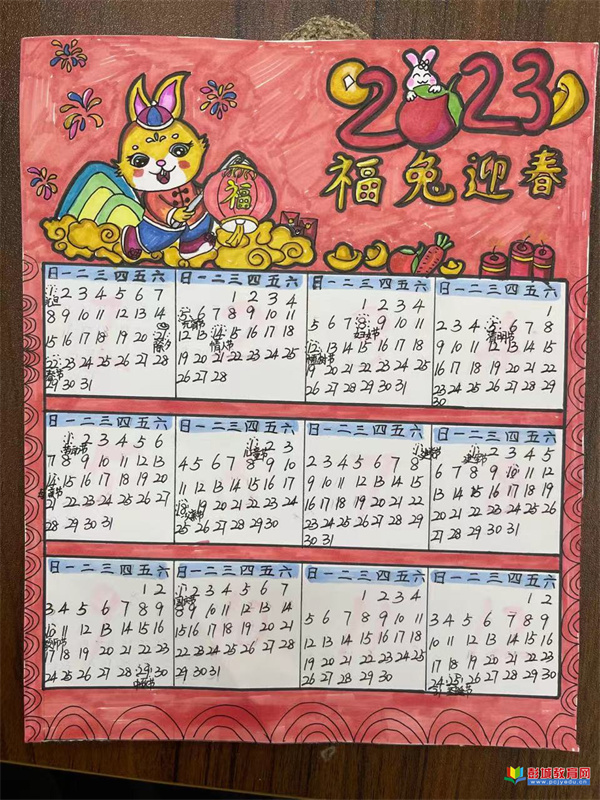 2023
福兔迎春
福
日一二三四五六
1 2 3 4 5 6 7
元旦
8 9 10 11 12 13 14
15 16 17 18 19 20 21
除夕
22 23 24 25 26 27 28
春节
29 30 31
日一二三四五六
1 2 3 4
5 6 7 8 9 10 11
元宵节
12 13 14 15 16 17 18
情人节
19 20 21 22 23 24 25
26 27 28
日一二三四五六
1 2 3 4
5 6 7 8 9 10 11
妇女节
12 13 14 15 16 17 18
植树节
19 20 21 22 23 24 25
26 27 28 29 30 31
日一二三四五六
1
2 3 4 5 6 7 8
清明节
9 10 11 12 13 14 15
16 17 18 19 20 21 22
23 24 25 26 27 28 29
30
日一二三四五六
1 2 3 4 5 6
劳动节
7 8 9 10 11 12 13
14 15 16 17 18 19 20
母亲节
21 22 23 24 25 26 27
28 29 30 31
日一二三四五六
1 2 3
儿童节
4 5 6 7 8 9 10
11 12 13 14 15 16 17
18 19 20 21 22 23 24
父亲节
25 26 27 28 29 30
日一二三四五六
1
建党节
2 3 4 5 6 7 8
9 10 11 12 13 14 15
16 17 18 19 20 21 22
23 24 25 26 27 28 29
30 31
日一二三四五六
1 2 3 4 5
建军节
6 7 8 9 10 11 12
13 14 15 16 17 18 19
20 21 22 23 24 25 26
27 28 29 30 31
日一二三四五六
1 2
3 4 5 6 7 8 9
10 11 12 13 14 15 16
教师节
17 18 19 20 21 22 23
24 25 26 27 28 29 30
中秋节
日一二三四五六
1 2 3 4 5 6 7
国庆节
8 9 10 11 12 13 14
15 16 17 18 19 20 21
22 23 24 25 26 27 28
29 30 31
日一二三四五六
1 2 3 4
5 6 7 8 9 10 11
12 13 14 15 16 17 18
19 20 21 22 23 24 25
26 27 28 29 30
日一二三四五六
1 2
3 4 5 6 7 8 9
10 11 12 13 14 15 16
17 18 19 20 21 22 23
24 25 26 27 28 29 30
31 圣诞节
彭城教育网
www.pcjyedu.cn